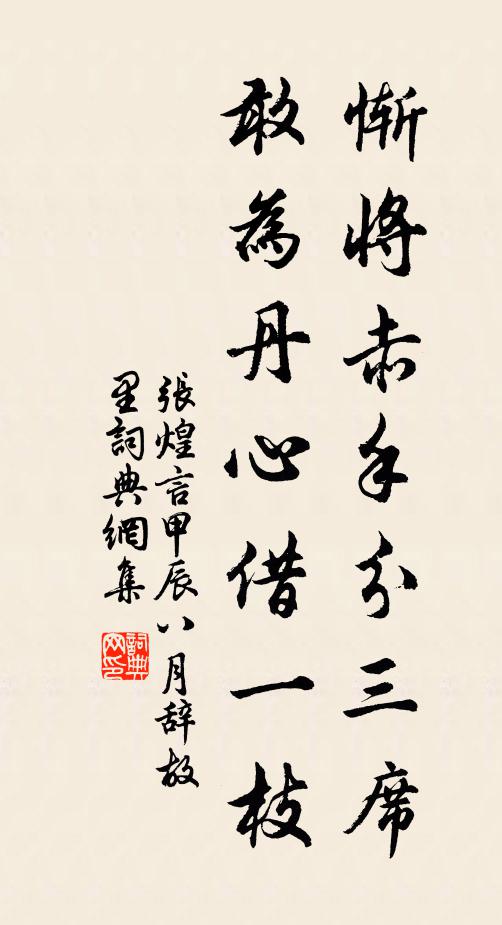 慚將赤手分三席
敢為丹心借一枝
張煌言甲辰八月辞故
里詞典網集
詞典
网印